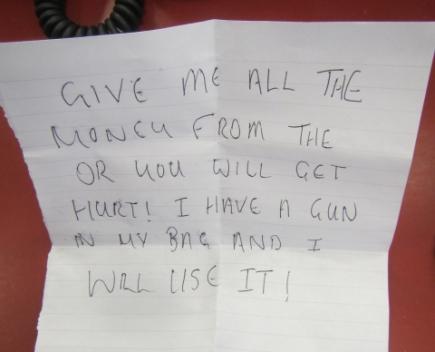 GIVE ME ALL THE
MONEY FROM THE
OR YOU WILL GET
HURT! I HAVE A GUN
IN MY BAG AND I
WILL USE IT!